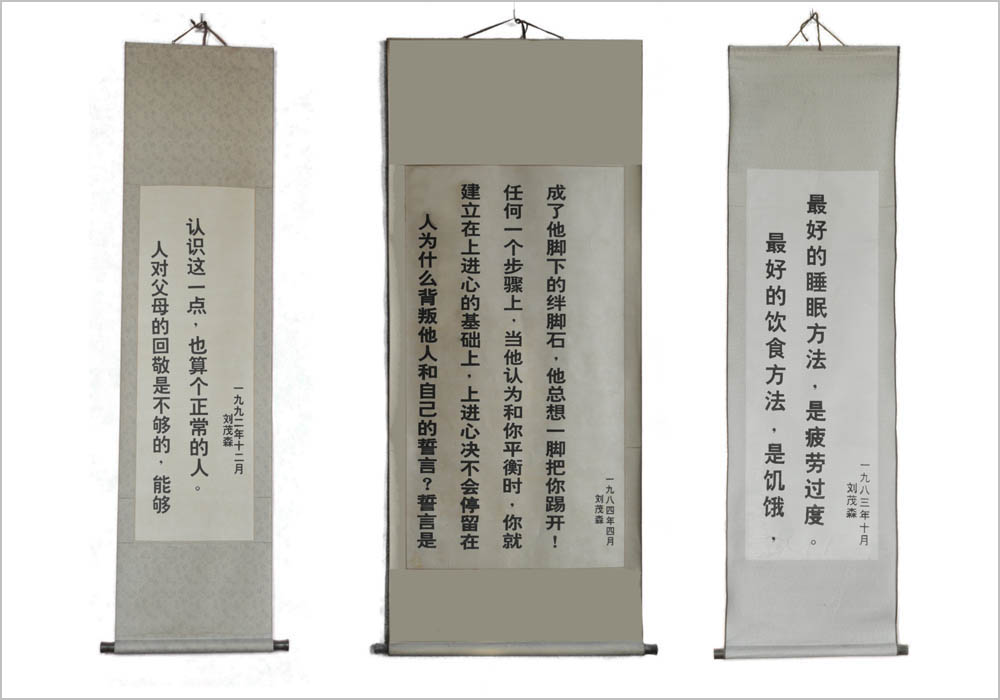 人对父母的回敬是不够的，能够
认识这一点，也算个正常的人。
刘茂森
一九九二年十二月
人为什么背叛他人和自己的誓言？誓言是
建立在上进心的基础上，上进心决不会停留在
任何一个步骤上，当他认为和你平衡时，你就
成了他脚下的绊脚石，他总想一脚把你踢开！
刘茂森
一九八四年四月
最好的饮食方法，是饥饿，
最好的睡眠方法，是疲劳过度。
刘茂森
一九八三年十月